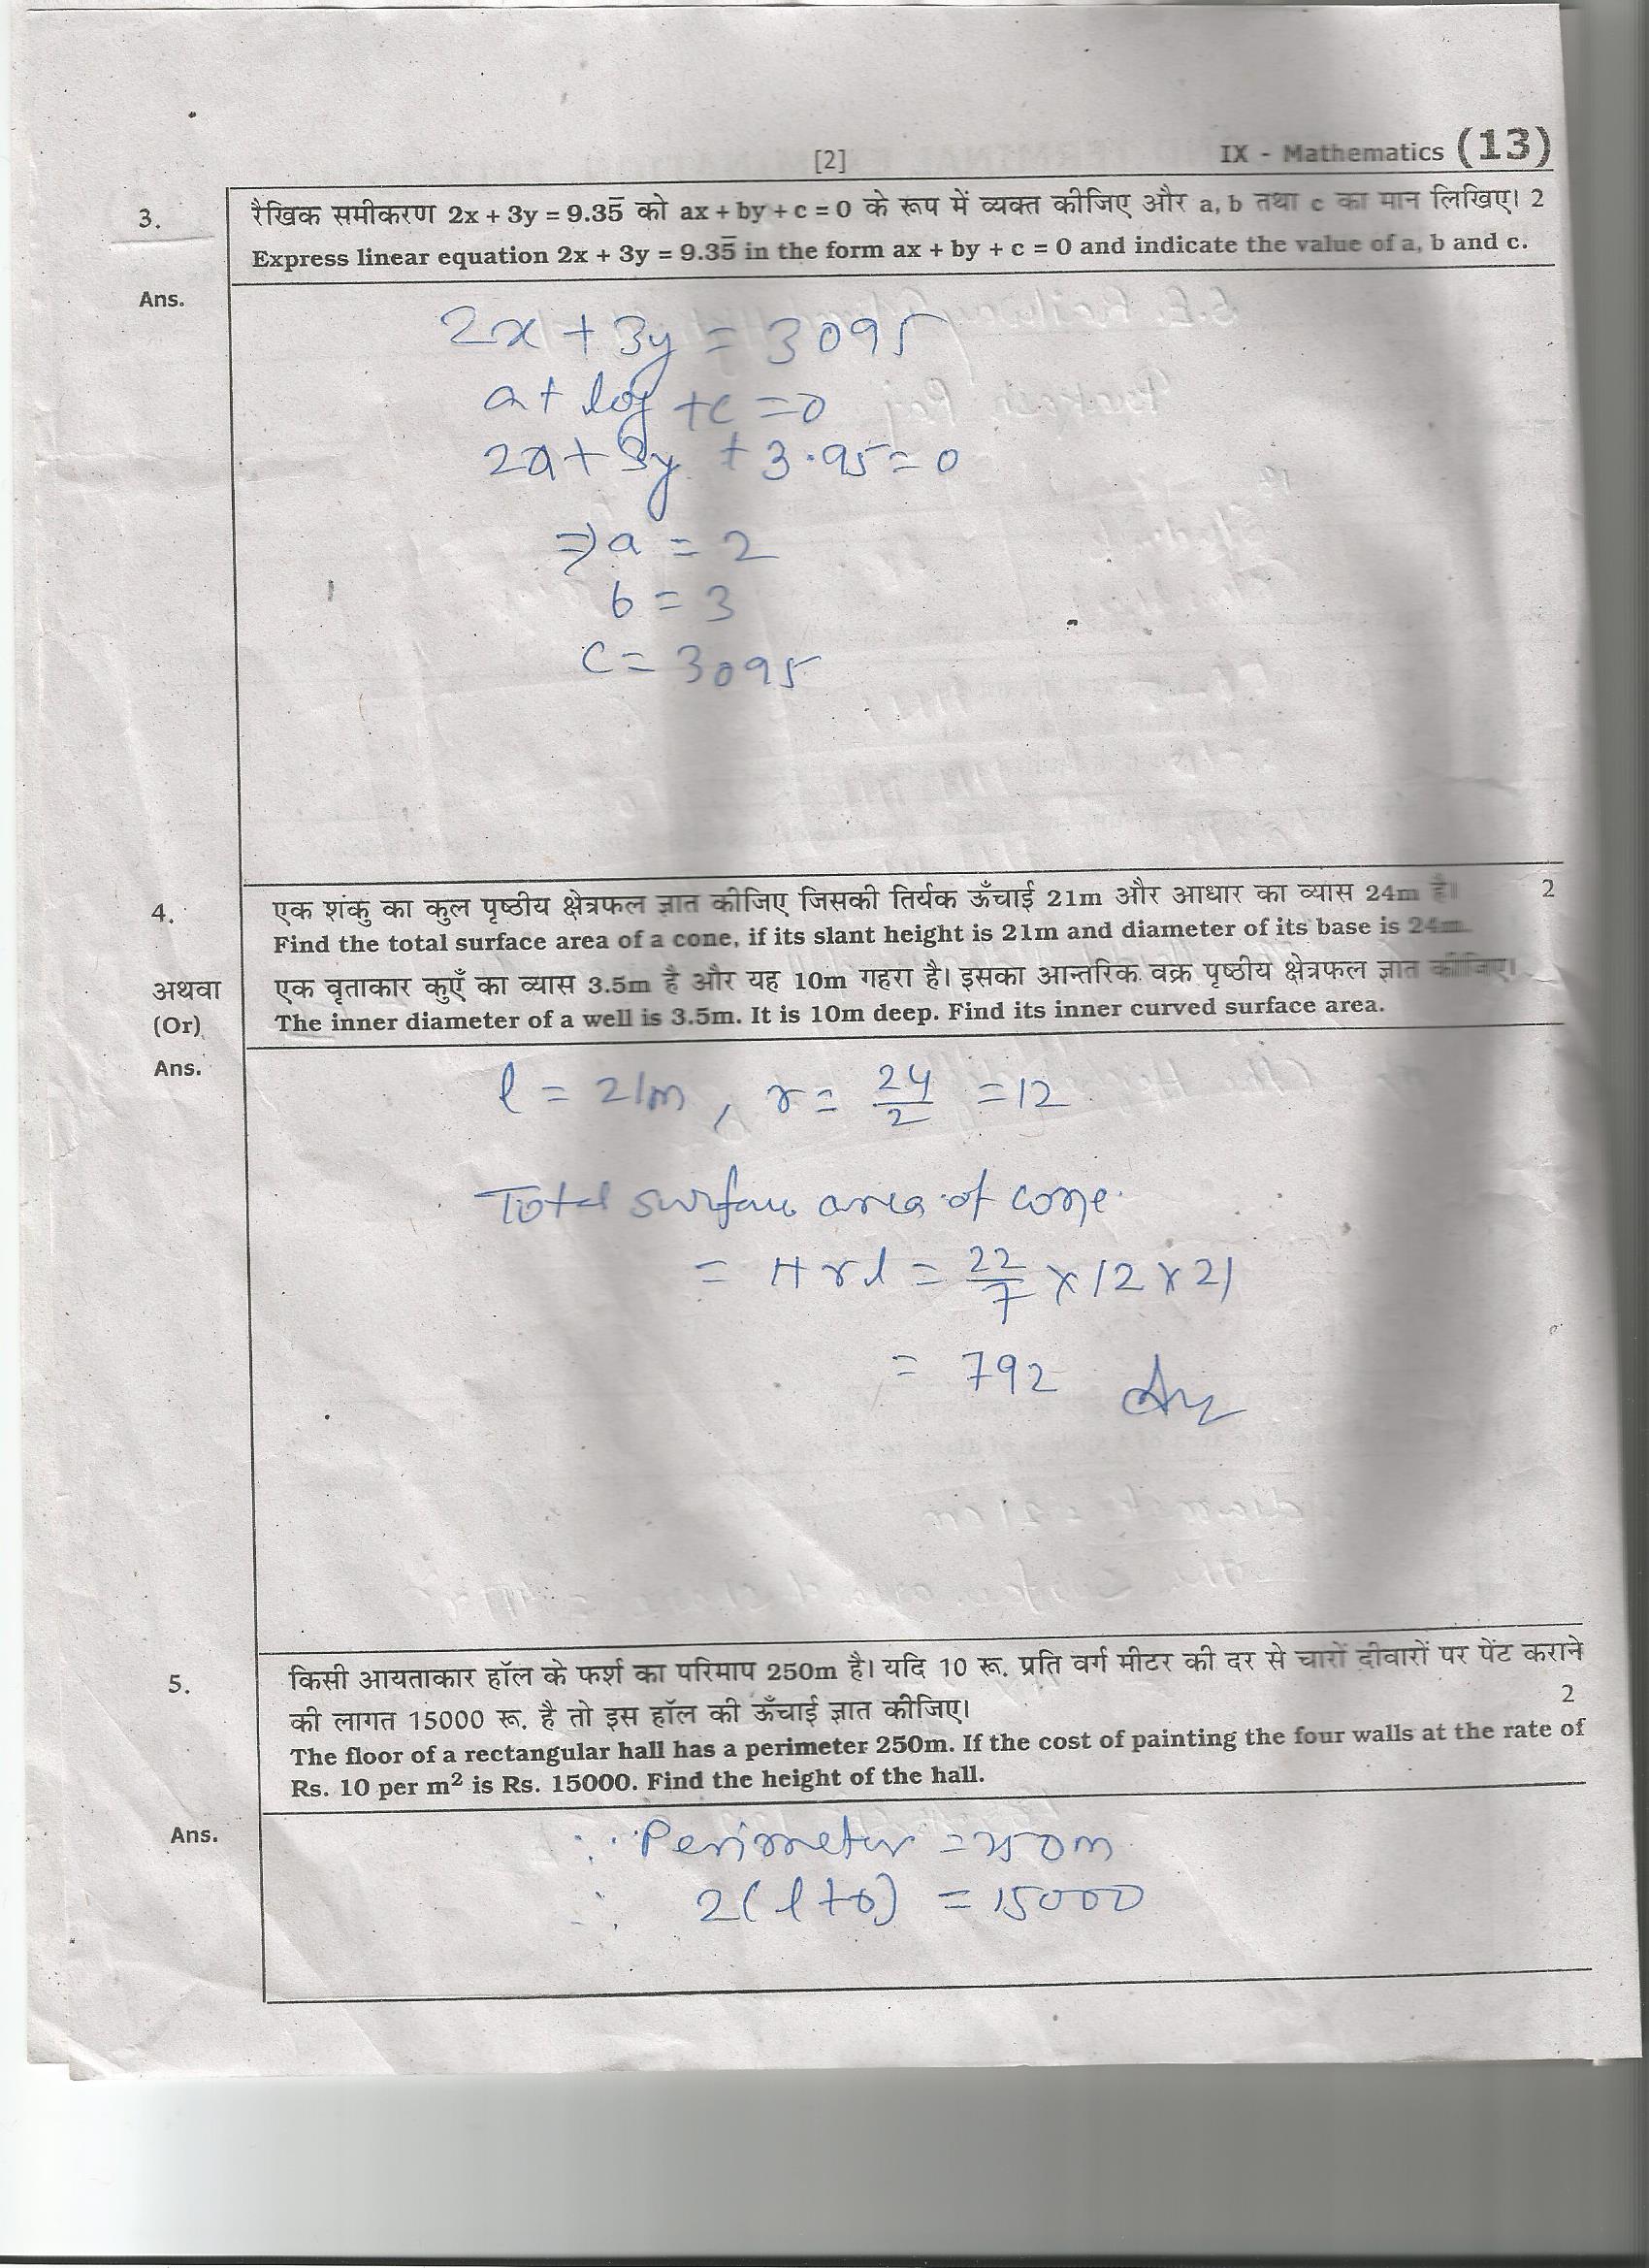 [2]
IX - Mathematics (13)
3.
रैखिक समीकरण 2x + 3y = 9.35̅ को ax + by + c = 0 के रूप में व्यक्त कीजिए और a, b तथा c का मान लिखिए। 2
Express linear equation 2x + 3y = 9.35̅ in the form ax + by + c = 0 and indicate the value of a, b and c.
Ans.
2x + 3y = 3095
a + by + c = 0
2a + 3y + 3.95 = 0
⇒ a = 2
b = 3
c = 3095
4.
एक शंकु का कुल पृष्ठीय क्षेत्रफल ज्ञात कीजिए जिसकी तिर्यक ऊँचाई 21m और आधार का व्यास 24m है। 2
Find the total surface area of a cone, if its slant height is 21m and diameter of its base is 24m.
अथवा
(Or)
एक वृताकार कुएँ का व्यास 3.5m है और यह 10m गहरा है। इसका आन्तरिक वक्र पृष्ठीय क्षेत्रफल ज्ञात कीजिए।
The inner diameter of a well is 3.5m. It is 10m deep. Find its inner curved surface area.
Ans.
l = 21m , r = 24/2 = 12
Total surface area of cone
= πrl = 22/7 × 12 × 21
= 792 Ans
5.
किसी आयताकार हॉल के फर्श का परिमाप 250m है। यदि 10 रू. प्रति वर्ग मीटर की दर से चारों दीवारों पर पेंट कराने
की लागत 15000 रू. है तो इस हॉल की ऊँचाई ज्ञात कीजिए। 2
The floor of a rectangular hall has a perimeter 250m. If the cost of painting the four walls at the rate of
Rs. 10 per m² is Rs. 15000. Find the height of the hall.
Ans.
∵ Perimeter = 250m
∴ 2(l+b) = 15000